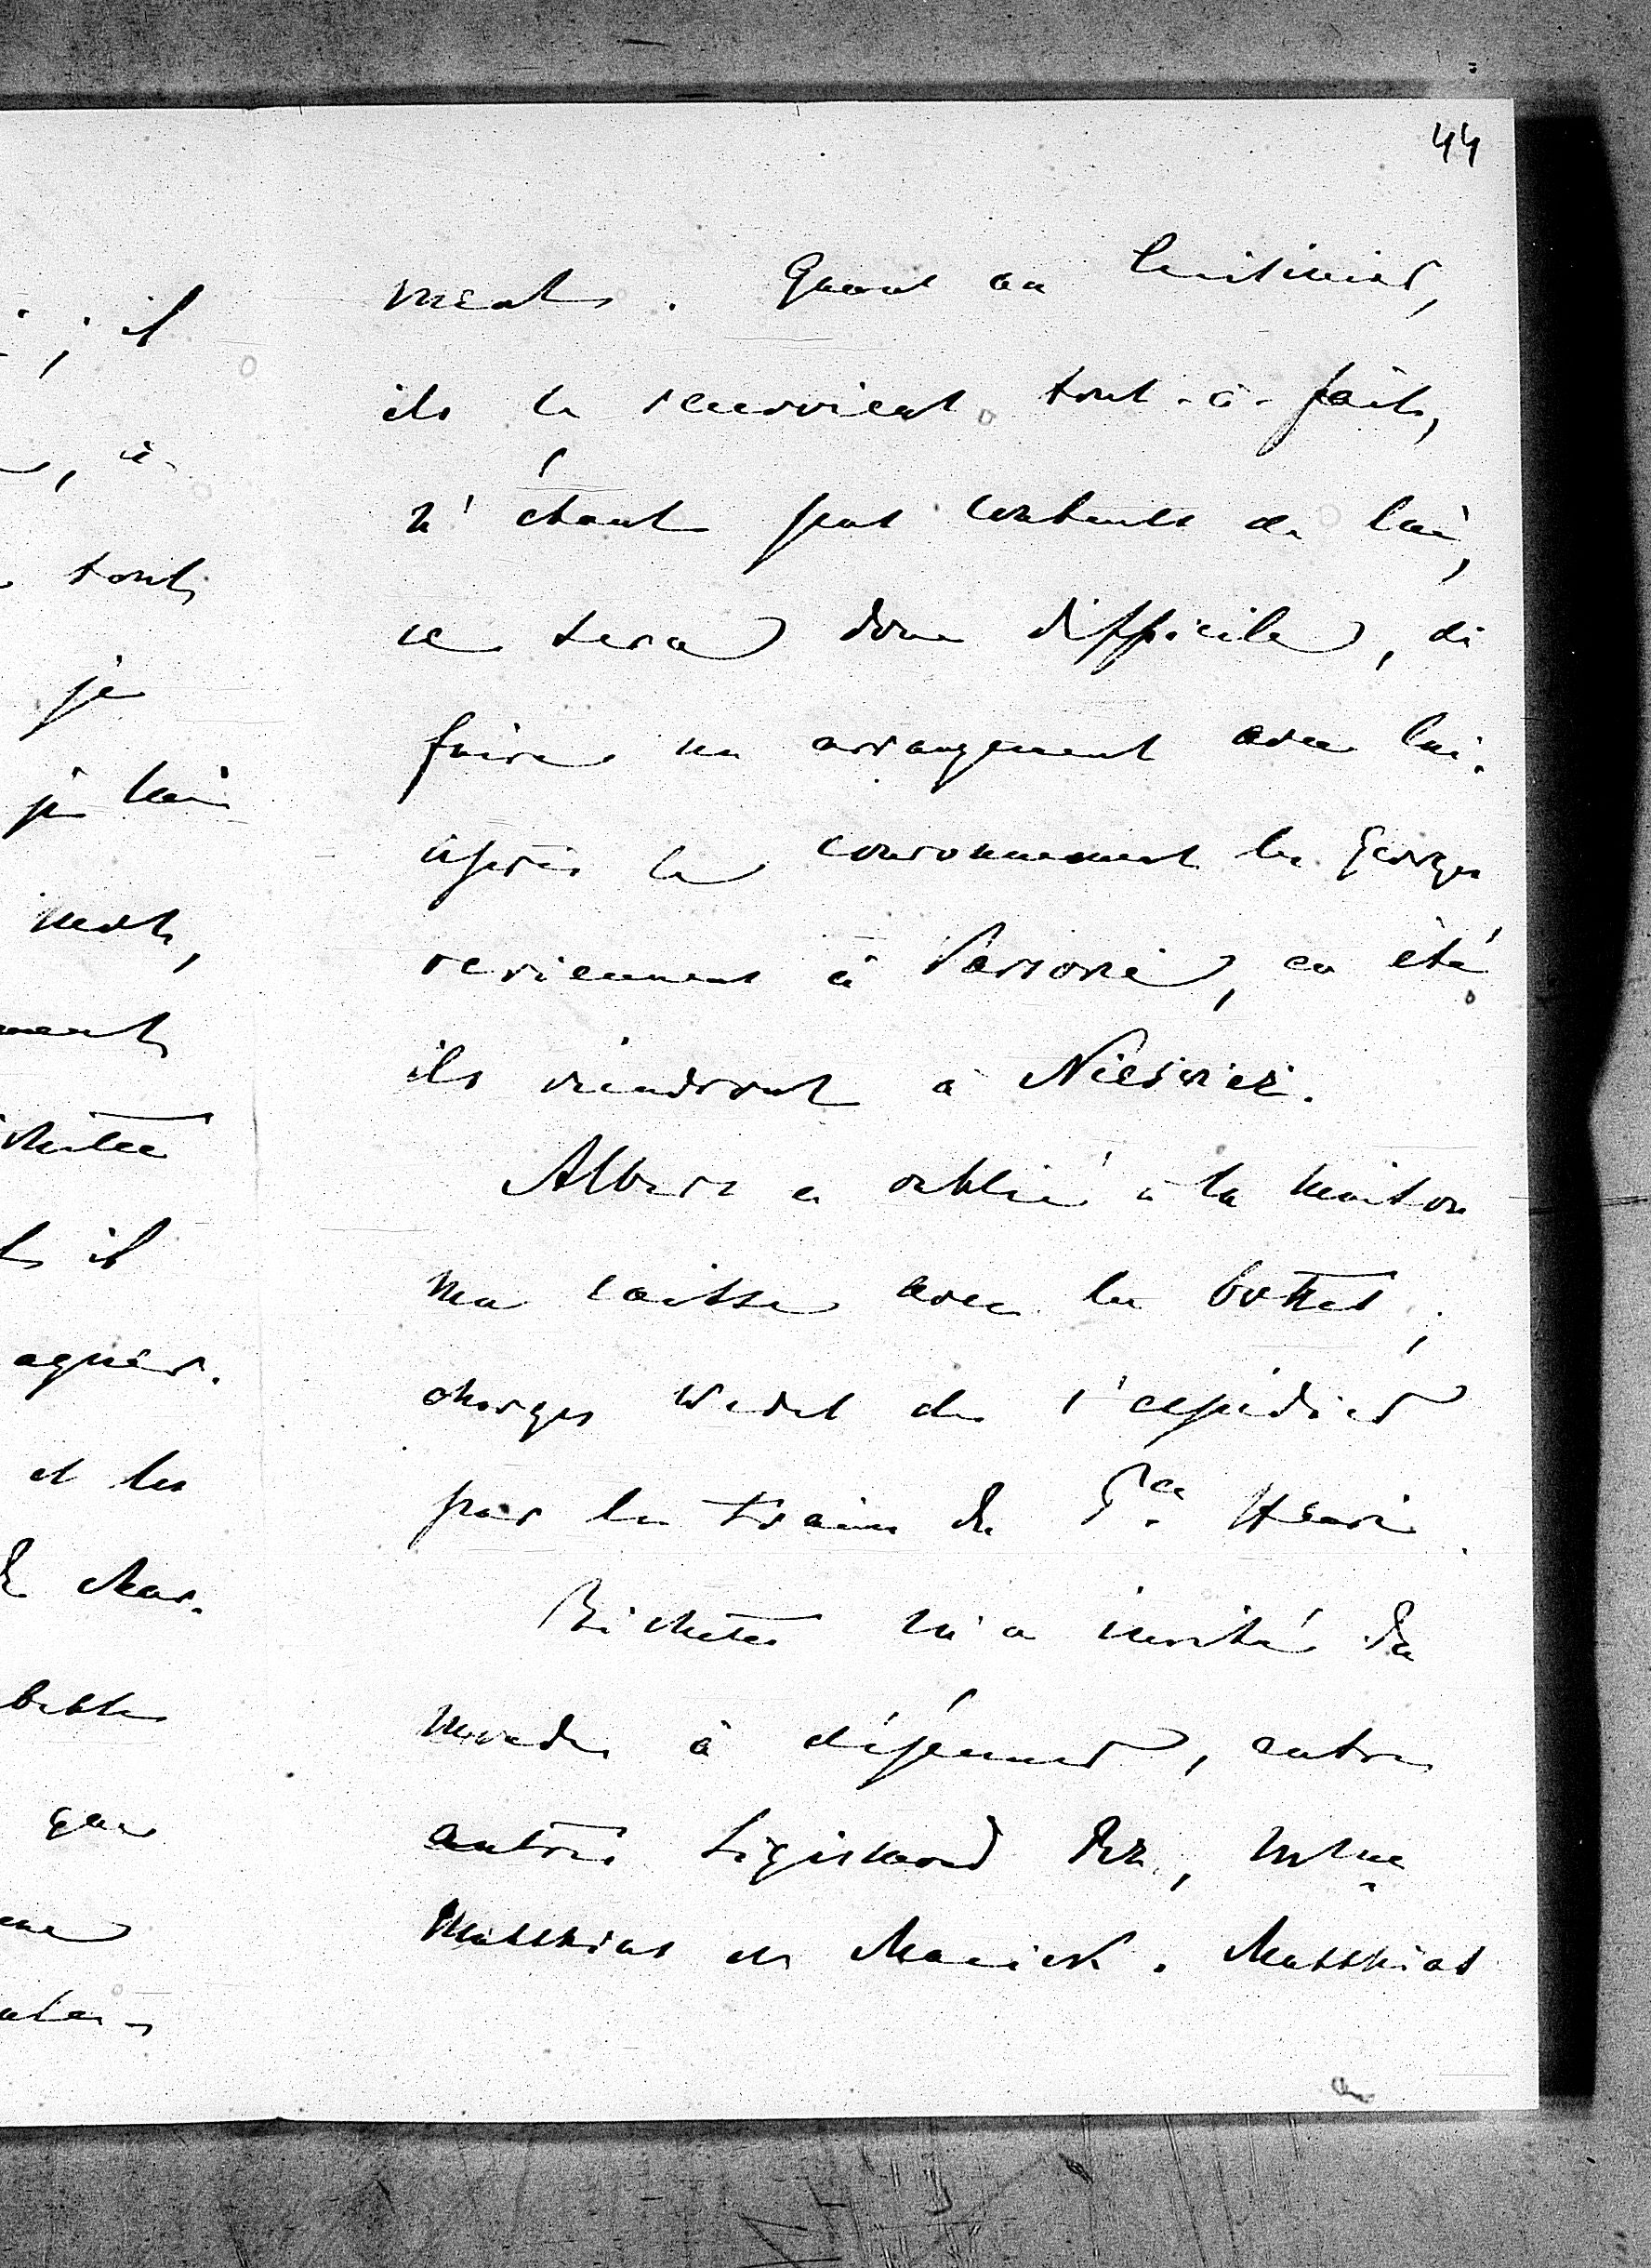 44
ments. Quant au cuisinier,
ils le renvoient tout-à-fait,
n'étant pas contents de lui,
ce sera donc difficile, de
faire un arrangement avec lui.
après le couronnement les Georges
reviennent à Varsovie, en été
ils viendront à Nieśwież.
Albert a oublié à la maison
ma caisse avec les bottes,
chargez de l'expédier
par le train du Pce Henri.
Bichette m'a invité du
monde à déjeuner, entre
autres Sigismond Rz., Mme
Matthias et Maciek. Matthias
; il
à
tout
je
je lui
ment
il
et les
que